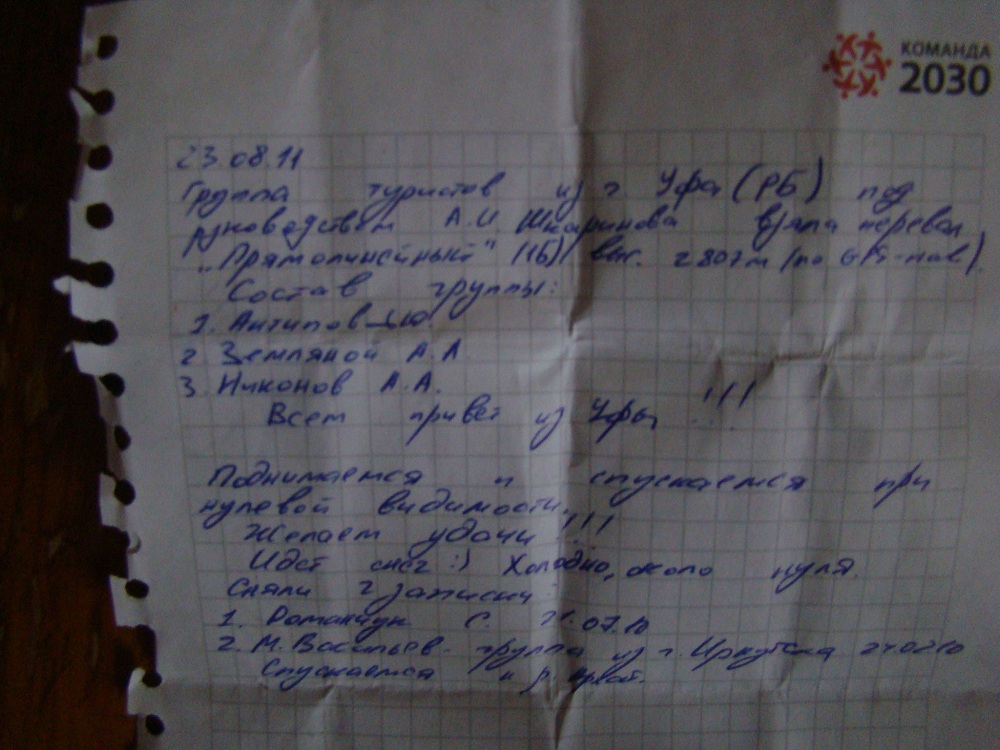 КОМАНДА
2030
23.08.11
Группа туристов из г. Уфа (РБ) под
руководством А.И. Шкаринова взяла перевал
"Прямолинейный" (1Б) выс. 2807м (по GPS-нав).
Состав группы:
1. Антипов
2 Земляной А.А.
3. Никонов А.А.
Всем привет из Уфы !!!
Поднимаемся и спускаемся при
нулевой видимости.
Желаем удачи !!!
Идет снег :) Холодно, около нуля.
Сняли 2 записки
1. Романчук С. .07.10
2. М. Васильев группа из г. Иркутска
Спускаемся к р.